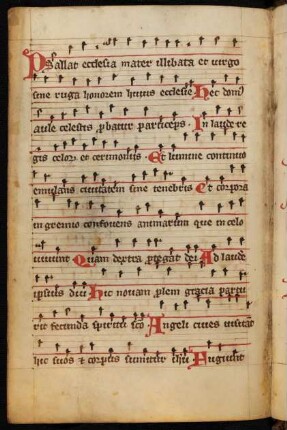 Psallat ecclesia mater illibata et virgo
sine ruga honorem huius ecclesie Hec dom
aule celestis pbatur particeps In laude re
gis celor et cerimoniis Et lumine continuo
emulans civitatem sine tenebris Et corpora
in gremio confovens animarum que in celo
vivunt Quam dextra ptegat dei Ad laude
ipsius diu Hic novam plem gracia partu
rit fecunda spiritu sco Angeli cives visitat
hic suos et corpus sumitur Fugiunt